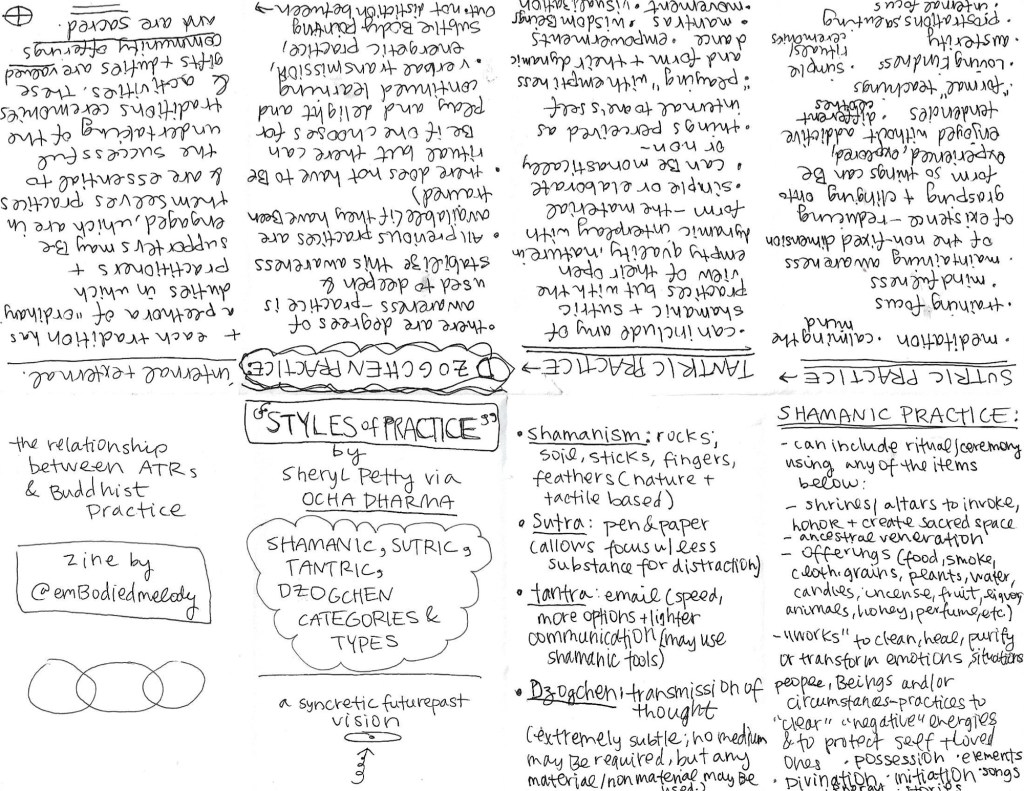 "STYLES of PRACTICE"
by
Sheryl Petty via
OCHA DHARMA
SHAMANIC, SUTRIC,
TANTRIC,
DZOGCHEN
CATEGORIES &
TYPES
a syncretic futurepast
vision
• Shamanism: rocks,
soil, sticks, fingers,
feathers (nature +
tactile based)
• Sutra: pen & paper
(allows focus w/less
substance for distraction)
• tantra: email (speed,
more options + lighter
communication/may use
shamanic tools)
• Dzogchen: transmission of
thought
(extremely subtle; no medium
may be required, but any
material/nonmaterial may be
used)
SHAMANIC PRACTICE:
- can include ritual/ceremony
using any of the items
below:
- shrines/altars to invoke,
honor + create sacred space
- ancestral veneration
- offerings (food, smoke,
cloth, grains, plants, water,
candles, incense, fruit, liquor,
animals, honey, perfume, etc.)
- "works" to clean, heal, purify
or transform emotions, situations
people, Beings and/or
circumstances - practices to
"clear" "negative" energies
& to protect self + loved
ones • possession • elements
• Divination • initiation • songs
energy stories
SUTRIC PRACTICE →
• meditation • calming the
mind
• training focus
• mindfulness
• maintaining awareness
of the non-fixed dimension
of existence - reducing
grasping + clinging onto
form so things can Be
experienced, explored,
enjoyed without addictive
tendencies • different
clothes
• "formal" teachings
• Loving Kindness • simple
rituals/
ceremonies
• austerity
• prostrations
• internal focus
TANTRIC PRACTICE →
• can include any of
shamanic + sutric
practices but with the
view of their open
empty quality/nature in
dynamic interplay with
form - the material
• simple or elaborate
• can Be monastically
or non-
• things perceived as
internal to one's self
• "playing" with emptiness
and form + their dynamic
dance • empowerments
• mantras • wisdom Beings
• movement • visualization
DZOGCHEN PRACTICE:
• there are degrees of
awareness - practice is
used to deepen &
stabilize this awareness
• All previous practices are
available (if they have been
trained)
• there does not have to Be
ritual but there can
Be if one chooses for
play and delight and
continued learning
• verbal transmission,
energetic practice,
subtle Body pointing
out • not distiction between →
internal + external.
+ each tradition has
a plethora of "ordinary"
duties in which
practitioners +
supporters may Be
engaged, which are in
themselves practices
& are essential to
the successful
undertaking of the
traditions ceremonies
& activities. These
gifts + duties are valued
community offerings
and are sacred.
the relationship
between ATRs
& Buddhist
Practice
zine by
@emBodiedmelody